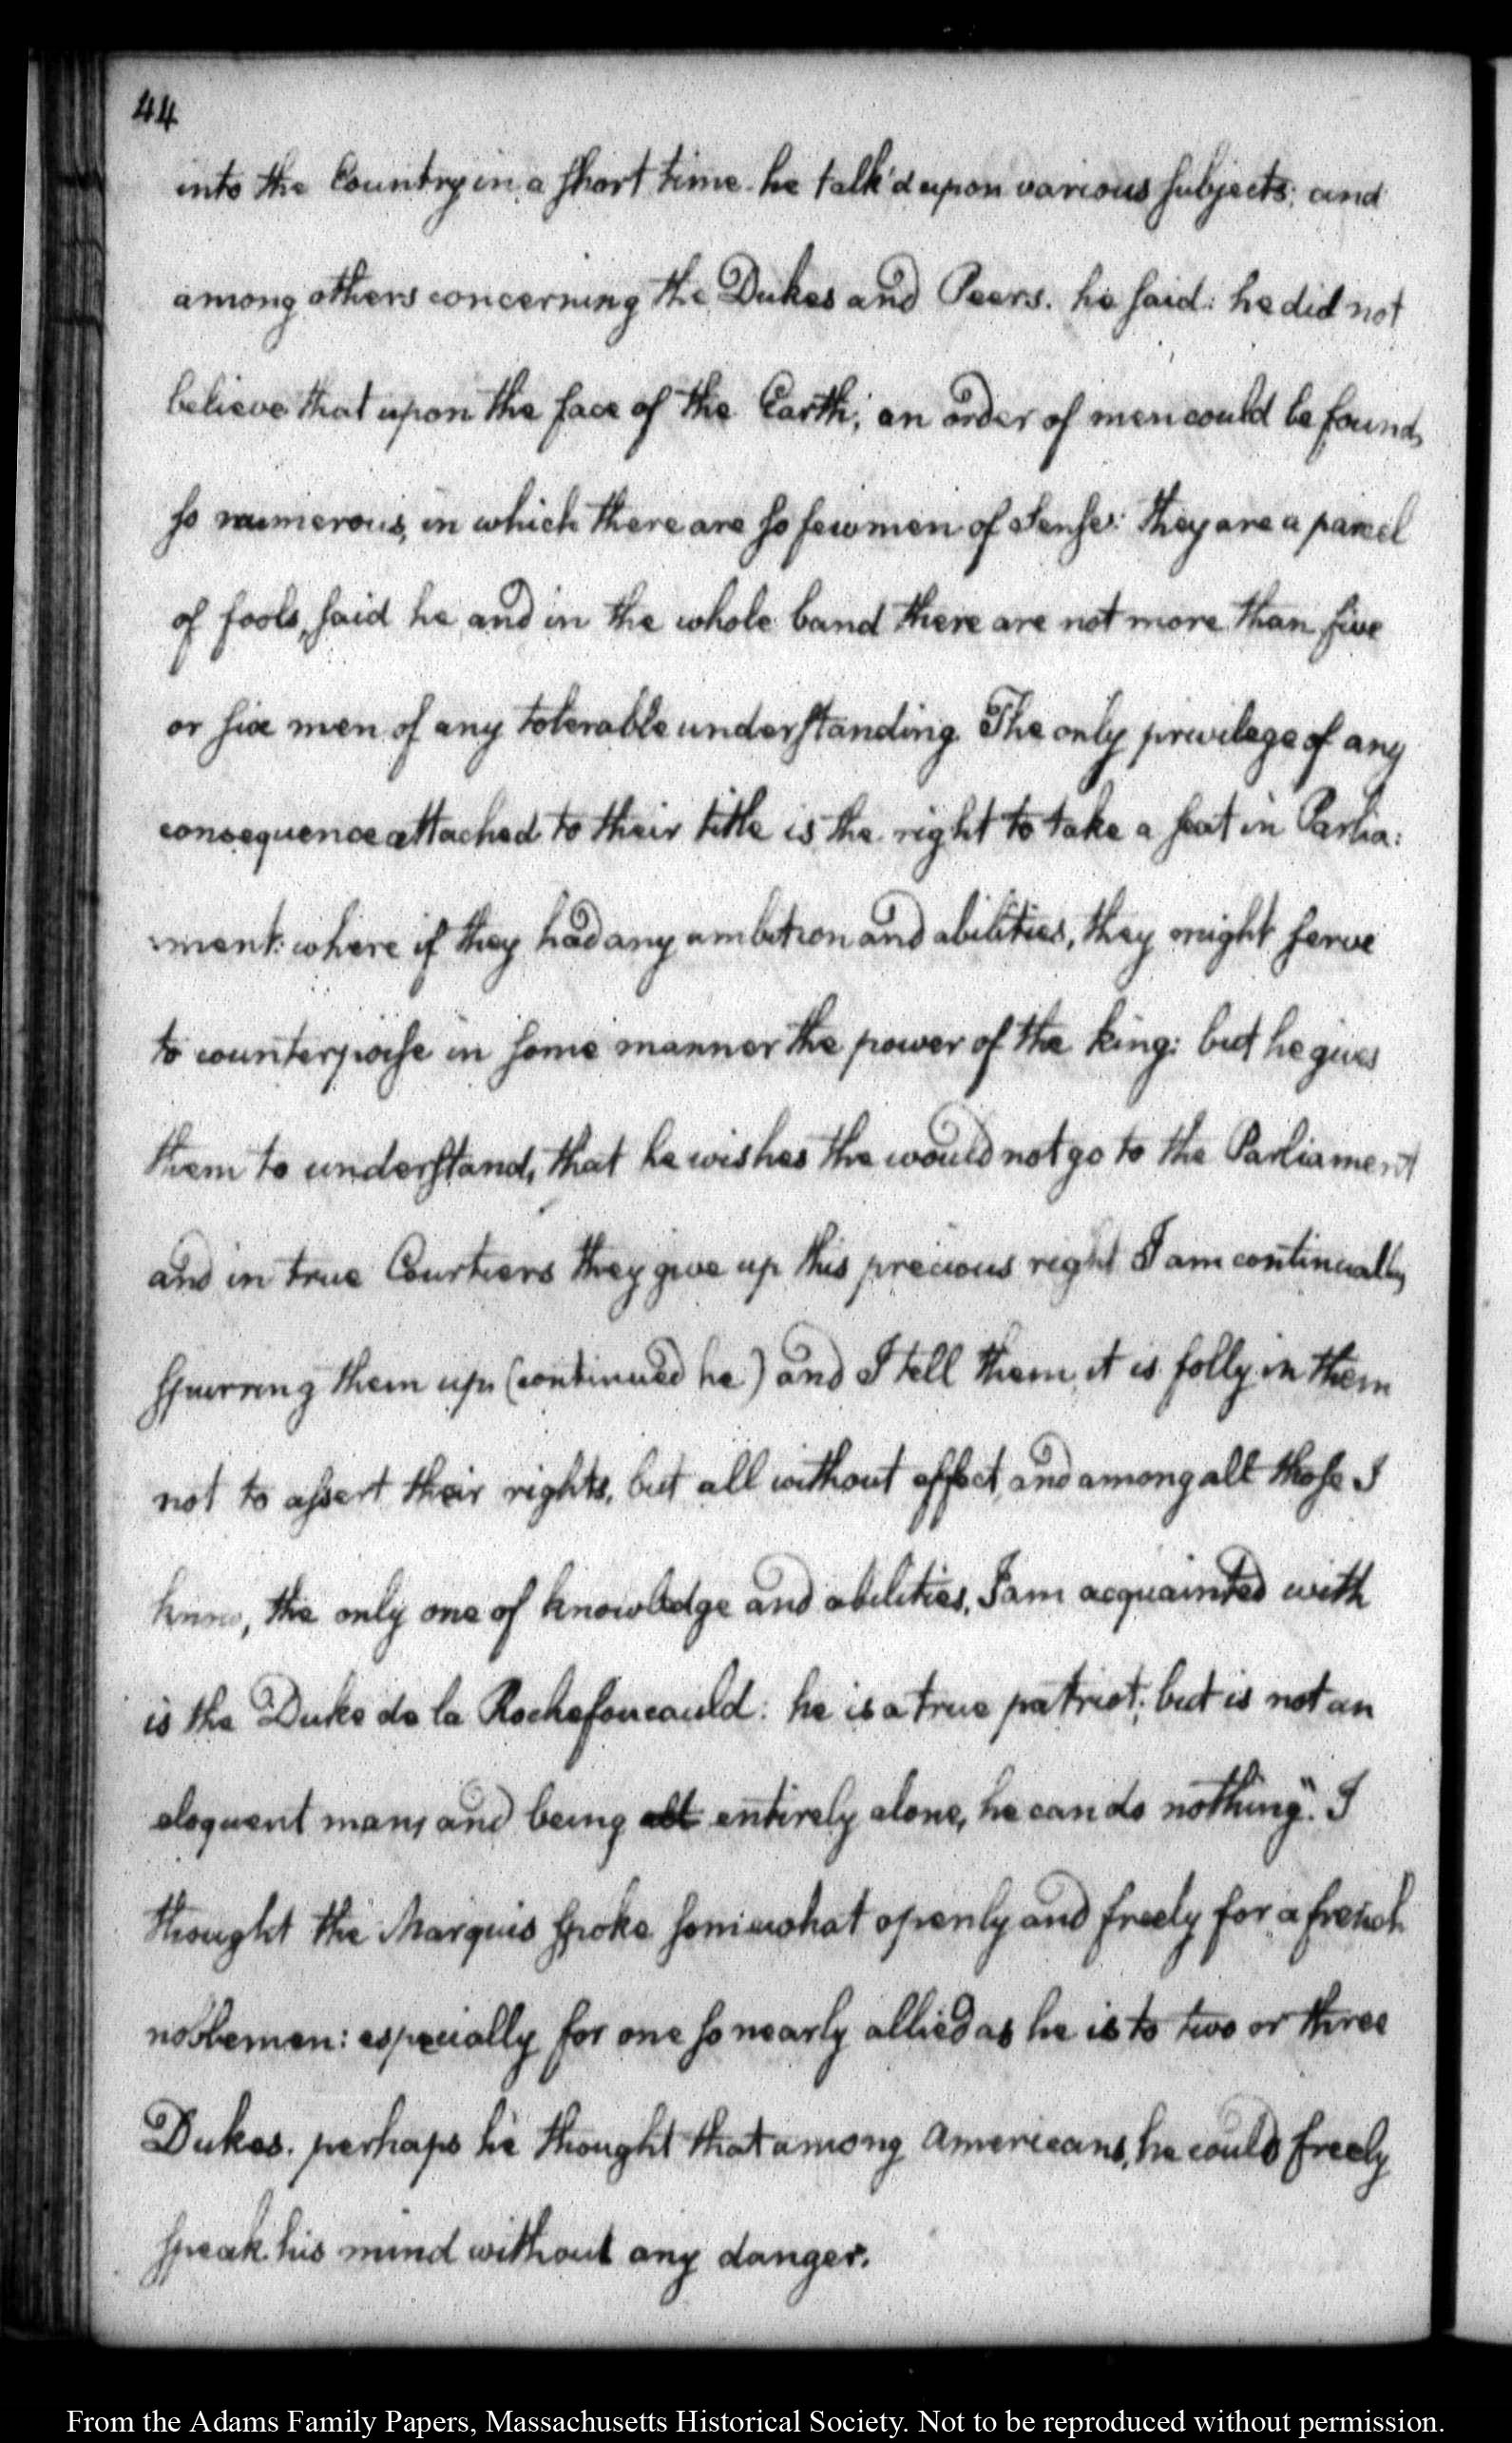 44
into the Country in a short time. he talk'd upon various subjects; and
among others concerning the Dukes and Peers. he said: he did not
believe that upon the face of the Earth; an order of men could be found,
so numerous, in which there are so few men of Sense: they are a parcel
of fools, said he and in the whole band there are not more than five
or six men of any tolerable understanding. The only privilege of any
consequence attached to their title is the right to take a seat in Parlia:
:ment: where if they had any ambition and abilities, they might serve
to counterpoise in some manner the power of the king: but he gives
them to understand, that he wishes the would not go to the Parliament
and in true Courtiers they give up this precious right I am continually
spurring them up (continued he) and I tell them it is folly in them
not to assert their rights, but all without effect, and among all those I
know, the only one of knowledge and abilities, I am acquainted with
is the Duke de la Rochefoucauld: he is a true patriot; but is not an
eloquent man, and being all entirely alone, he can do nothing". I
thought the Marquis spoke somewhat openly and freely for a french
noblemen: especially for one so nearly allied as he is to two or three
Dukes. perhaps he thought that among Americans, he could freely
speak his mind without any danger.
From the Adams Family Papers, Massachusetts Historical Society. Not to be reproduced without permission.